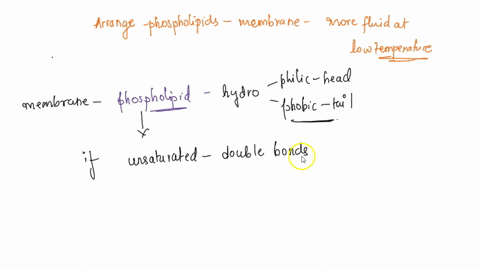 Arrange - phospholipids - membrane - more fluid at
low temperature
philic - head
membrane - phospholipid - hydro
phobic - tail
if unsaturated - double bonds